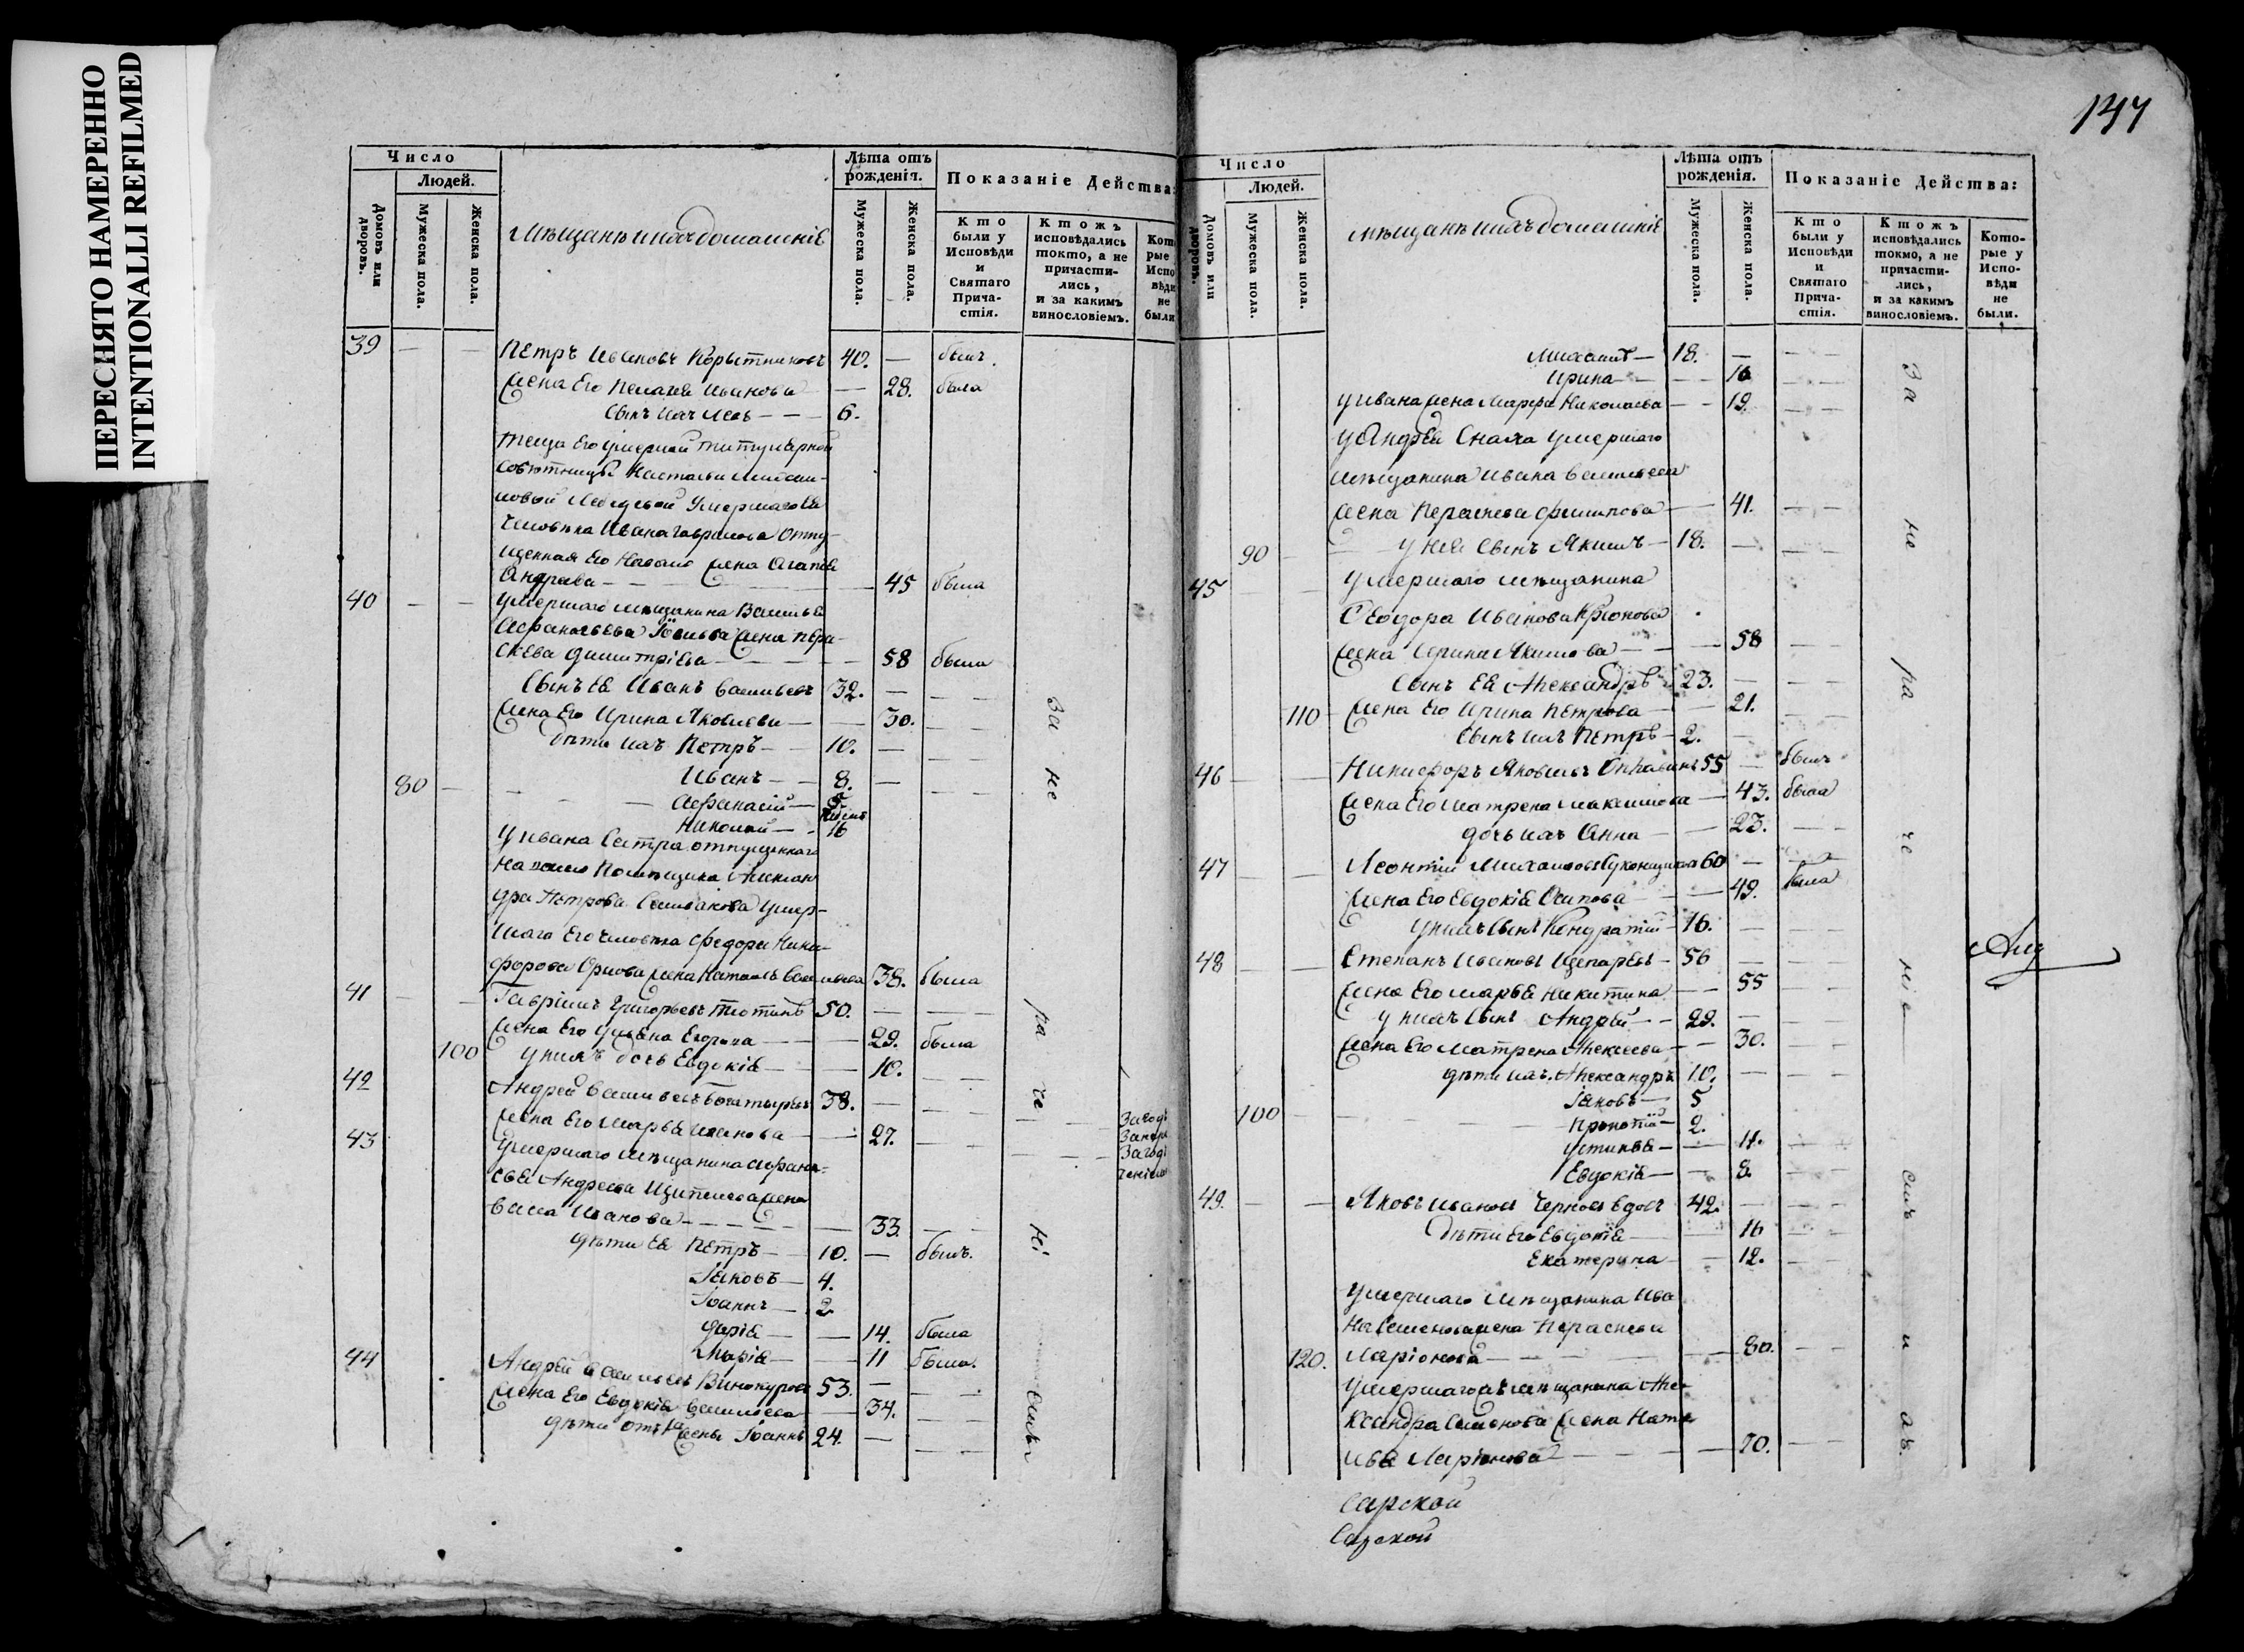 ПЕРЕСНЯТО НАМЕРЕННО
INTENTIONALLI REFILMED
Число
Людей.
Домовъ или дворовъ.
Мужеска пола.
Женска пола.
Мѣщане и ихъ домашніе
Лѣта отъ рожденія.
Мужеска пола.
Женска пола.
Показаніе Действа:
Кто были у Исповѣди и Святаго Причастія.
Ктожъ исповѣдались токмо, а не причастились, и за какимъ винословіемъ.
39 — — Петръ Ивановъ Корытниковъ 40. — былъ.
Жена Его Пелагея Иванова — 28. была
Сынъ ихъ Левъ — — 6.
теща Его умершей титулярной
Совѣтницы Настасьи Михаи-
ловой Лебедевой Умершаго Ея
человѣка Ивана Гаврилова отпу-
щенная Его На волю Жена Агапея
Андреева — 45 была
40 — — умершаго мѣщанина Василья
Афанасьева жена Пера-
скева Димитріева — 58 была
Сынъ Ея Иванъ Васильевъ 32. — — —
Жена Его Ирина Яковлева — — 30. — —
дѣти ихъ Петръ — 10. — — —
80 — Иванъ — 8. — — —
Афанасій — 5.
Николай —
у Ивана Сестра отпущеннаго
На волю Помѣщика Алексан
дра Петрова Селиванова умер-
шаго Его человѣка Федора Ники-
форова Орлова Жена Наталья Васильева 38. была
41 — — Гавріилъ Григорьевъ Тютинъ 50. — — —
Жена Его Ульяна Егорова — — 29. была
100 у нихъ дочь Евдокія — — 10. — —
42 Андрей Васильевъ Богатыревъ 38. — — —
Жена Его Марья Иванова — — 27. — —
43 Умершаго Мѣщанина Афана-
сья Андреева жена
Васса Иванова — — 33. — —
дѣти Ея Петръ — 10. — былъ.
Іаковъ — 4.
Іоаннъ — 2
Дарія — — 14. была
Марія — — 11 была.
44 Андрей Васильевъ Винокуровъ 53. — — —
Жена Его Евдокія Васильева — 34. — —
дѣти отъ 1й Жены Іоаннъ 24. — — —
За не ра че ні емъ
147
Число
Людей.
Домовъ или дворовъ.
Мужеска пола.
Женска пола.
мѣщане и ихъ домашніе
Лѣта отъ рожденія.
Мужеска пола.
Женска пола.
Показаніе Действа:
Кто были у Исповѣди и Святаго Причастія.
Ктожъ исповѣдались токмо, а не причастились, и за какимъ винословіемъ.
Которые у Исповѣди не были.
Михаилъ — 18. — — —
Ирина — — 16 — —
у Ивана жена Марфа Николаева — — 19. — —
у Андрея Сноха умершаго
мѣщанина Ивана Васильева
жена Параскева Филипова — — 41. — —
90 — у Нея Сынъ Якимъ — 18. — — —
45 — — умершаго мѣщанина
Ѳеодора Иванова
Жена Ирина Якимова — — 58 —
Сынъ Ея Александръ 23. — — —
110 Жена Его Ирина Петрова — — 21. — —
Сынъ ихъ Петръ — 2. —
46 — — Никифоръ Яковлевъ 55 — былъ
Жена Его Матрена Максимова — 43. была
дочь ихъ Анна — — 23. — —
47 — — Леонтій Михаиловъ 60 — — —
Жена Его Евдокія Осипова — 49. была
у нихъ Сынъ Кондратій — 16. — — —
48 — — Степанъ Ивановъ 56 — — —
Жена Его Марья Никитина — — 55 — —
у нихъ Сынъ Андрей — — 29. — — —
Жена Его Матрена Алексеева — — 30. — —
дѣти ихъ Александръ 10. — — —
100 — Іаковъ — 5
2.
Устинья — — 11. — —
Евдокія — — 8. — —
49. — — Яковъ Ивановъ Черновъ вдовъ 42. — — —
Дѣти Его Евдокія — — 16 — —
Екатерина — — 12. — —
умершаго Мѣщанина Ива
на Семенова жена Параскева
120. Ларіонова — — — 80. — —
умершаго мѣщанина Але-
ксандра Семенова Жена Ната
лья Ларіонова — — 70. — —
За не ра че ніе емъ
Сарской
Сарской